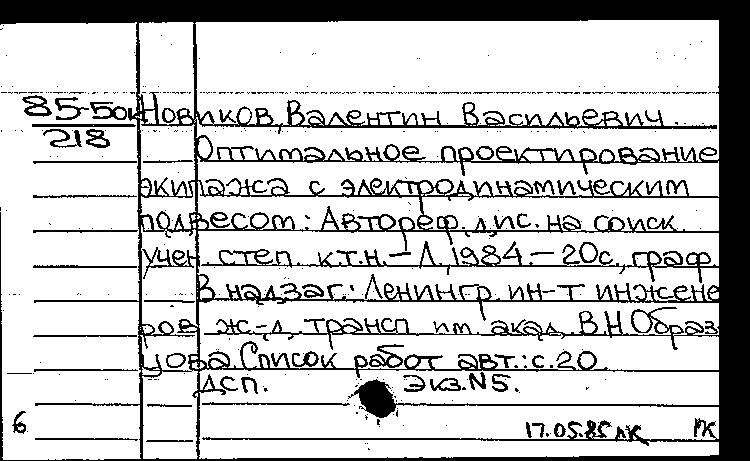 85-50к Новиков, Валентин Васильевич.
218
Оптимальное проектирование
экипажа с электродинамическим
подвесом: Автореф. дис. на соиск.
учен. степ. к.т.н. – Л., 1984. – 20с., граф.
В надзаг.: Ленингр. ин-т инжене
ров ж-д. трансп. им. акад. В.Н.Образ
цова. Список работ авт.: с.20.
ДСП. Экз.N5.
6 17.05.85 РК